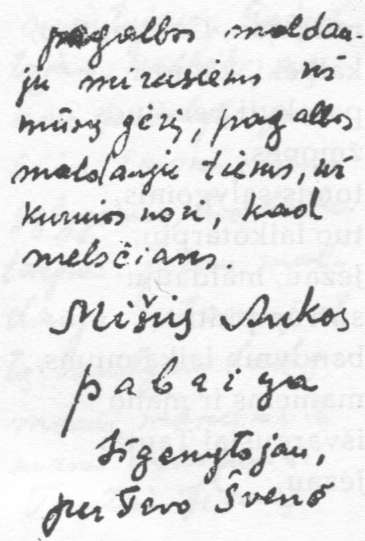 pagalbos meldžiu
ju mirusiems už
mūsų gerį, pagalbos
meldžiu tiems, už
kuriuos nori, kad
melsčiaus.
Mišių Aukos
pabaiga
Išganytojau,
per Tavo Švenč